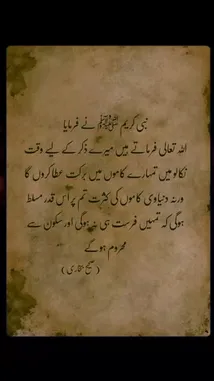 نبی کریم ﷺ نے فرمایا
اللہ تعالی فرماتے ہیں میرے ذکر کے لیے وقت
نکالو میں تمہارے کاموں میں برکت عطا کروں گا
ورنہ دنیاوی کاموں کی کثرت تم پر اس قدر مسلط
ہوگی کہ تمہیں فرصت ہی نہ ہوگی اور سکون سے
محروم ہو گے
(صحیح بخاری)